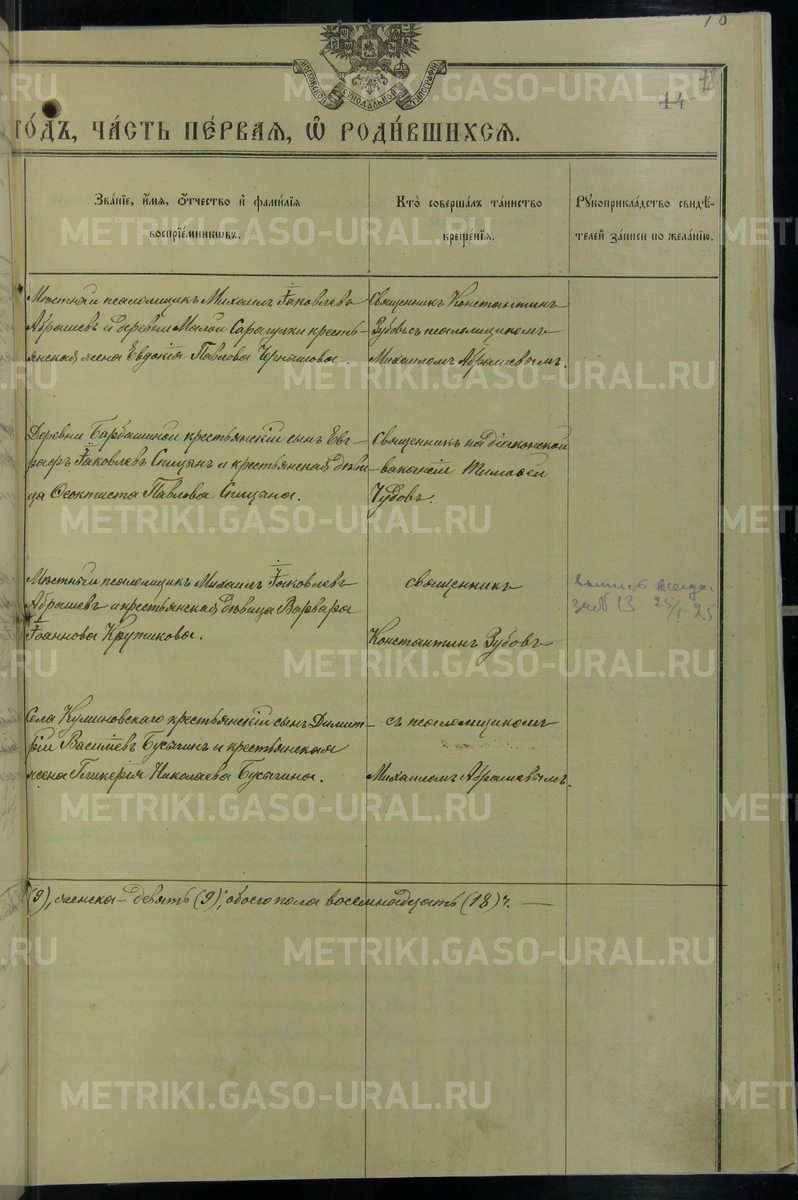 МОСКОВСКОЙ СѴНОДАЛЬНОЙ ТИПОГРАФІИ
14
ГО́ДЪ, ЧА́СТЬ ПЕ́РВАЯ, Ѡ҆ РОДИ́ВШИХСЯ.
Зва́ніе, и҆́мя, ѻ҆́тчество и҆ фами́лїя
воспрїе́мникѡвъ.
Кто̀ соверша́лъ та́инство
креще́нїѧ.
Рꙋкоприкла́дство свидѣ́-
телей за́писи по жела́нїю.
Мѣстный псаломщикъ Михаилъ Іаковлевъ
Абрашевъ и деревни Малой Сарагулки кресть-
янская жена Евдокія Павлова
Священникъ Константинъ
Зубовъ съ псаломщикомъ
Михаиломъ Абрашевымъ.
Деревни Барбашиной крестьянскій сынъ Евг-
рафъ Іаковлевъ Спицинъ и крестьянская дѣви-
ца Ѳеоктиста Павлова Спицина.
Священникъ на діаконской
вакансіи Тимоѳей
Мѣстный псаломщикъ Михаилъ Іаковлевъ
Абрашевъ и крестьянская дѣвица Варвара
Іоаннова Крутикова.
Священникъ
Константинъ Зубовъ
25/ 25
Села Куликовскаго крестьянскій сынъ Димит-
рій Василіевъ Бусыгинъ и крестьянская
жена Гликерія Николаева Бусыгина.
съ псаломщикомъ
Михаиломъ Абрашевымъ.
(9), женска - девять (9), обоего пола восемнадцать (18) ч.
METRIKI.GASO-URAL.RU